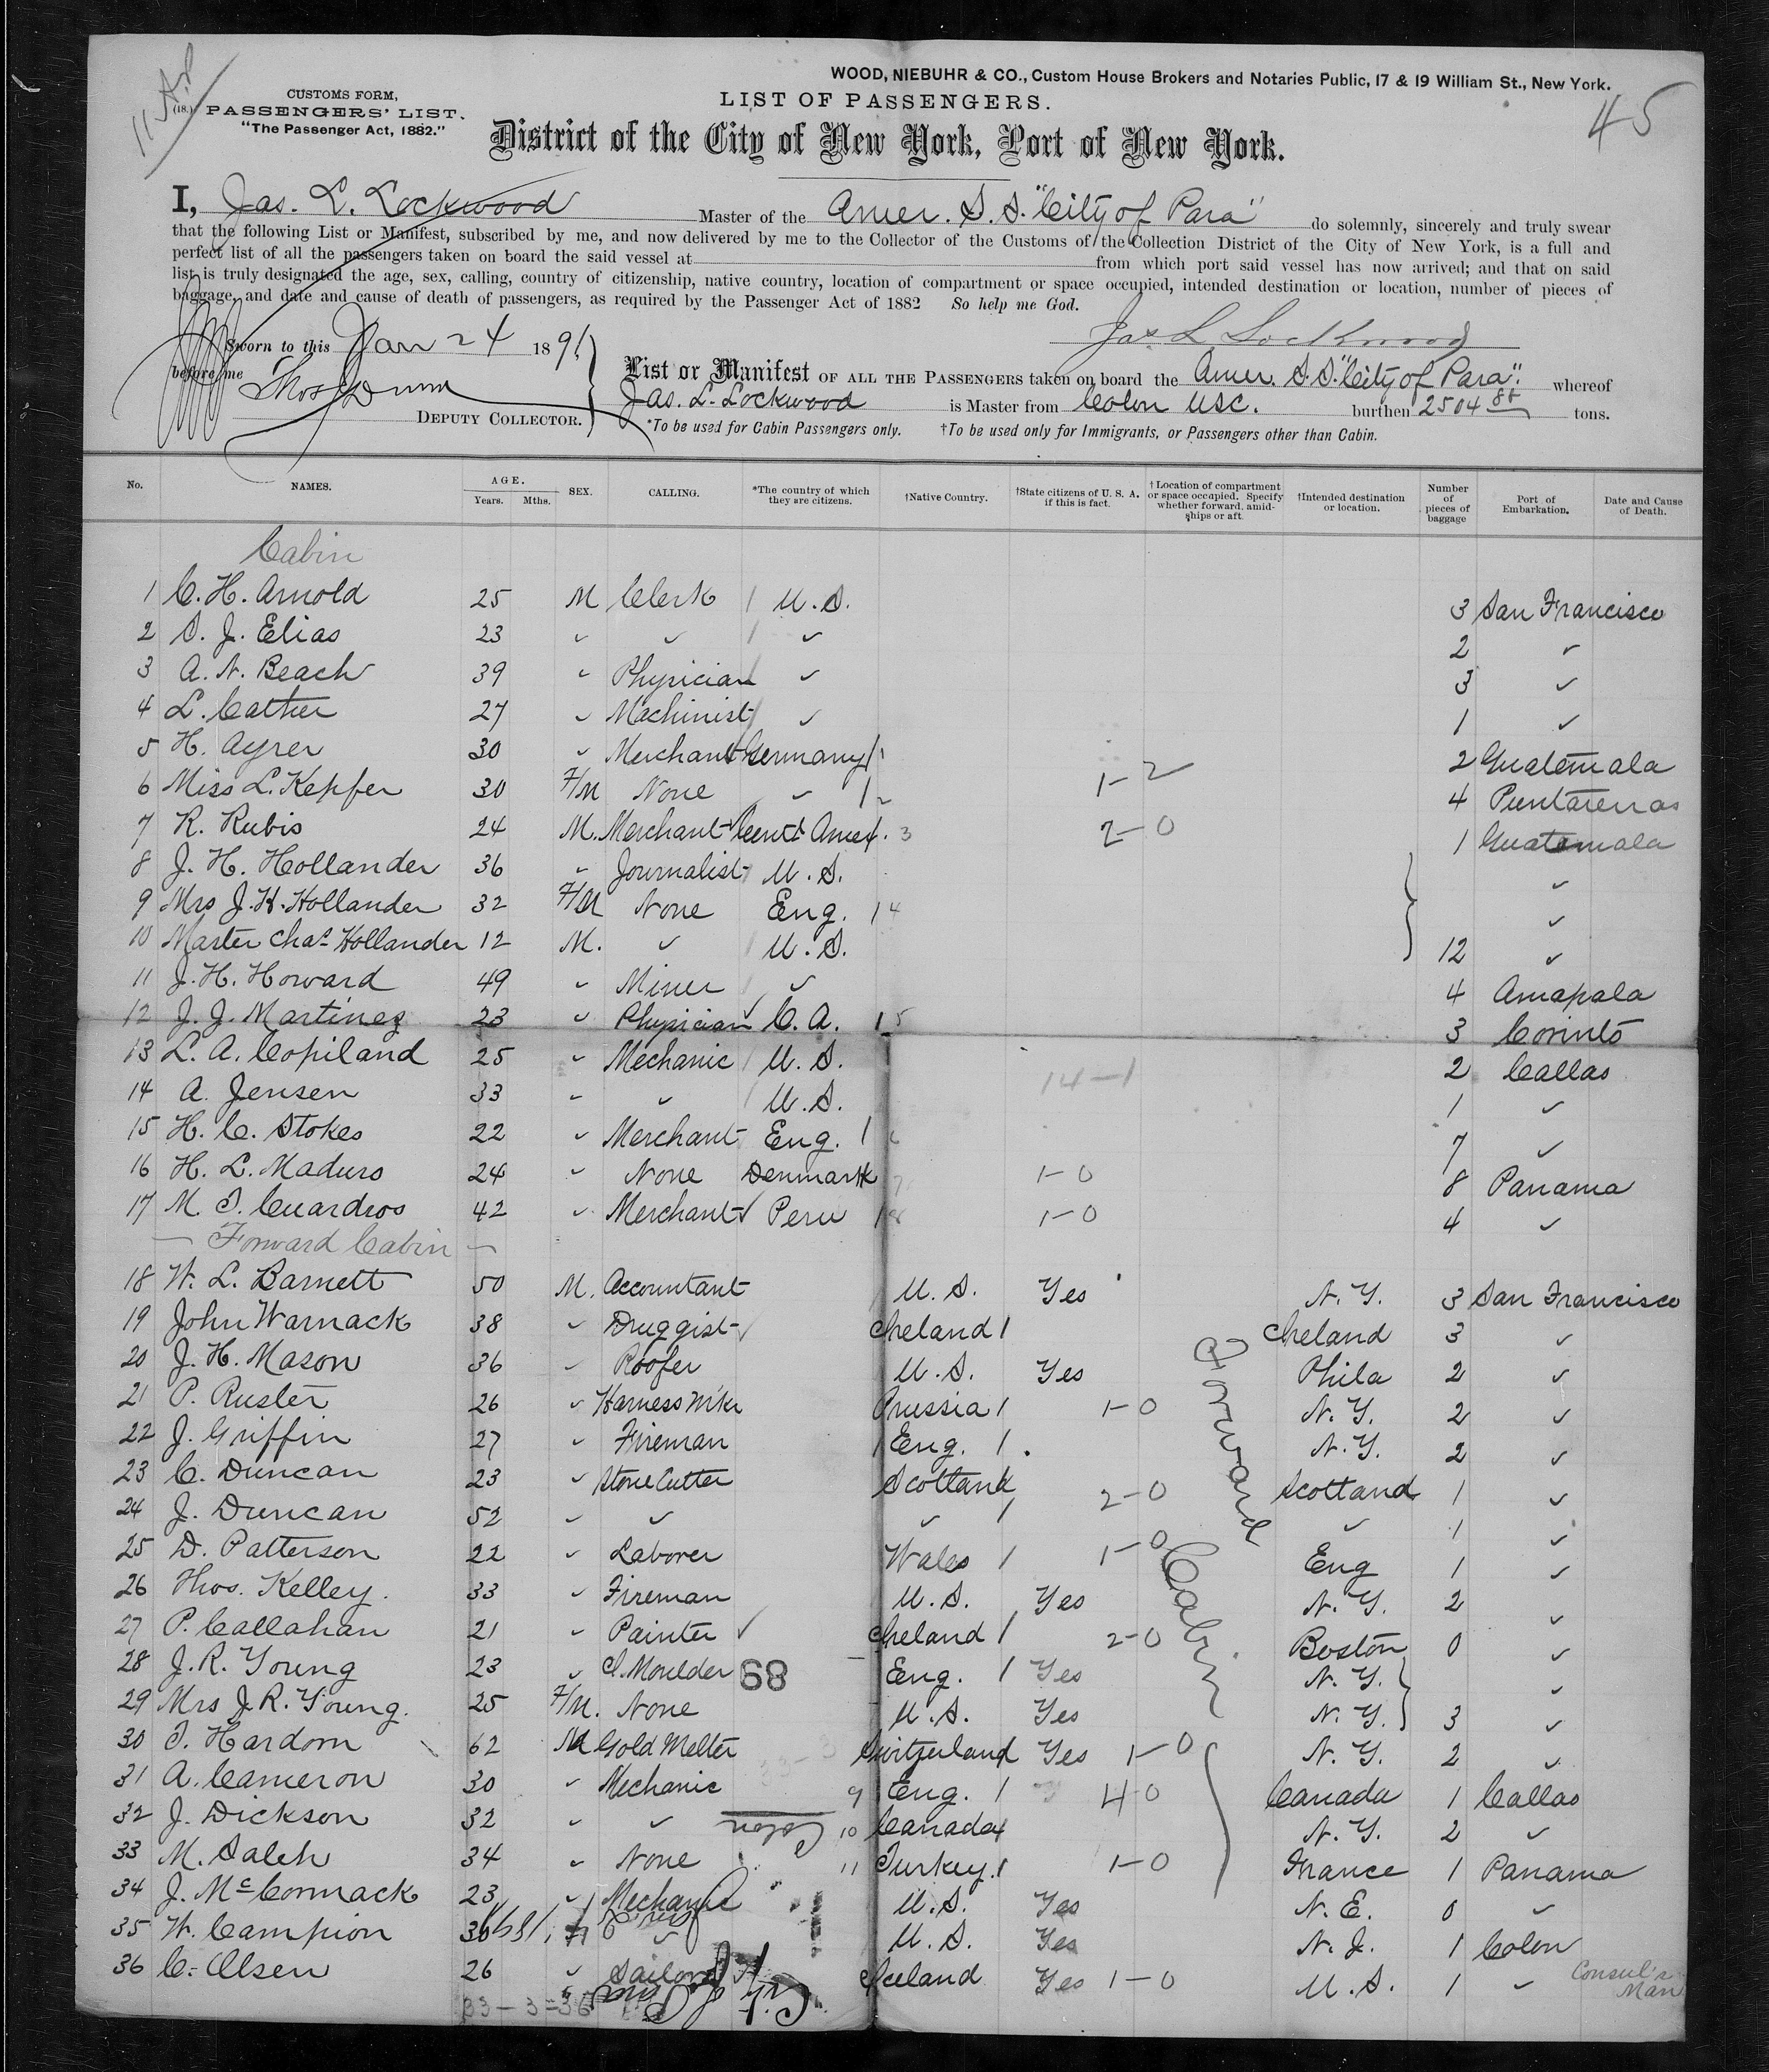 WOOD, NIEBUHR & CO., Custom House Brokers and Notaries Public, 17 & 19 William St., New York.
45
(18.)
CUSTOMS FORM,
PASSENGERS' LIST.
"The Passenger Act, 1882."
LIST OF PASSENGERS.
District of the City of New York, Port of New York.
I, Jas. L. Lockwood Master of the Amer. S.S. "City of Para" do solemnly, sincerely and truly swear
that the following List or Manifest, subscribed by me, and now delivered by me to the Collector of the Customs of the Collection District of the City of New York, is a full and
perfect list of all the passengers taken on board the said vessel at from which port said vessel has now arrived; and that on said
list is truly designated the age, sex, calling, country of citizenship, native country, location of compartment or space occupied, intended destination or location, number of pieces of
baggage, and date and cause of death of passengers, as required by the Passenger Act of 1882 So help me God.
Jas L Lockwood
Sworn to this Jan 24 1891
before me Thos Dunn
DEPUTY COLLECTOR.
List or Manifest OF ALL THE PASSENGERS taken on board the Amer. S.S. "City of Para". whereof
Jas. L. Lockwood is Master from Colon USC. burthen 2504 tons.
*To be used for Cabin Passengers only. †To be used only for Immigrants, or Passengers other than Cabin.
No. NAMES. AGE. Years. Mths. SEX. CALLING. *The country of which they are citizens. †Native Country. †State citizens of U. S. A. if this is fact. †Location of compartment or space occupied. Specify whether forward, amidships or aft. †Intended destination or location. Number of pieces of baggage Port of Embarkation. Date and Cause of Death.
Cabin
1 C. H. Arnold 25 M Clerk U.S. 3 San Francisco
2 S. J. Elias 23 " " " 2 "
3 A. N. Beach 39 " Physician " 3 "
4 L. Cather 27 " Machinist " 1 "
5 H. Ayrer 30 " Merchant Germany 1 2 Guatemala
6 Miss L. Kepfer 30 F/M None " 1 2 1-2 4 Puntarenas
7 R. Rubis 24 M. Merchant Cent. Amer. 3 2-0 1 Guatemala
8 J. H. Hollander 36 " Journalist U.S. "
9 Mrs J. H. Hollander 32 F/M None Eng. 1 4 "
10 Master Chas. Hollander 12 M. " U.S. 12 "
11 J. H. Howard 49 " Miner " 4 Amapala
12 J. J. Martinez 23 " Physician C. A. 1 5 3 Corinto
13 L. A. Copiland 25 " Mechanic U.S. 2 Callao
14 A. Jensen 33 " " U.S. 14-1 1 "
15 H. C. Stokes 22 " Merchant Eng. 1 6 7 "
16 H. L. Maduro 24 " None Denmark 7 1-0 8 Panama
17 M. T. Cuardros 42 " Merchant Peru 1 8 1-0 4 "
— Forward Cabin —
18 W. L. Barnett 50 M. Accountant U.S. Yes N.Y. 3 San Francisco
19 John Warnack 38 " Druggist Ireland 1 Ireland 3 "
20 J. H. Mason 36 " Roofer U.S. Yes Phila 2 "
21 P. Rusler 26 " Harness Mkr Prussia 1 1-0 N.Y. 2 "
22 J. Griffin 27 " Fireman Eng. 1 N.Y. 2 "
23 C. Duncan 23 " Stone Cutter Scotland 2-0 Scotland 1 "
24 J. Duncan 52 " " " 1 " 1 "
25 D. Patterson 22 " Laborer Wales 1 1-0 Eng 1 "
26 Thos. Kelley. 33 " Fireman U.S. Yes N.Y. 2 "
27 P. Callahan 21 " Painter Ireland 1 2-0 Boston 0 "
28 J. R. Young 23 " I. Moulder Eng. 1 Yes N.Y. "
29 Mrs J. R. Young. 25 F/M. None U.S. Yes N.Y. 3 "
30 T. Hardom 62 M Gold Melter Switzerland Yes 1-0 N.Y. 2 "
31 A. Cameron 30 " Mechanic 9 Eng. 1 4-0 Canada 1 Callao
32 J. Dickson 32 " " 10 Canada 1 N.Y. 2 "
33 M. Saleh 34 " None 11 Turkey 1 1-0 France 1 Panama
34 J. McCormack 23 " Mechanic U.S. Yes N.E. 0 "
35 W. Campion 36 " " U.S. Yes N.J. 1 Colon
36 C. Olsen 26 " Sailor Iceland Yes 1-0 U.S. 1 " Consul's Man
Forward Cabin
68
Colon
1891
33-3=36